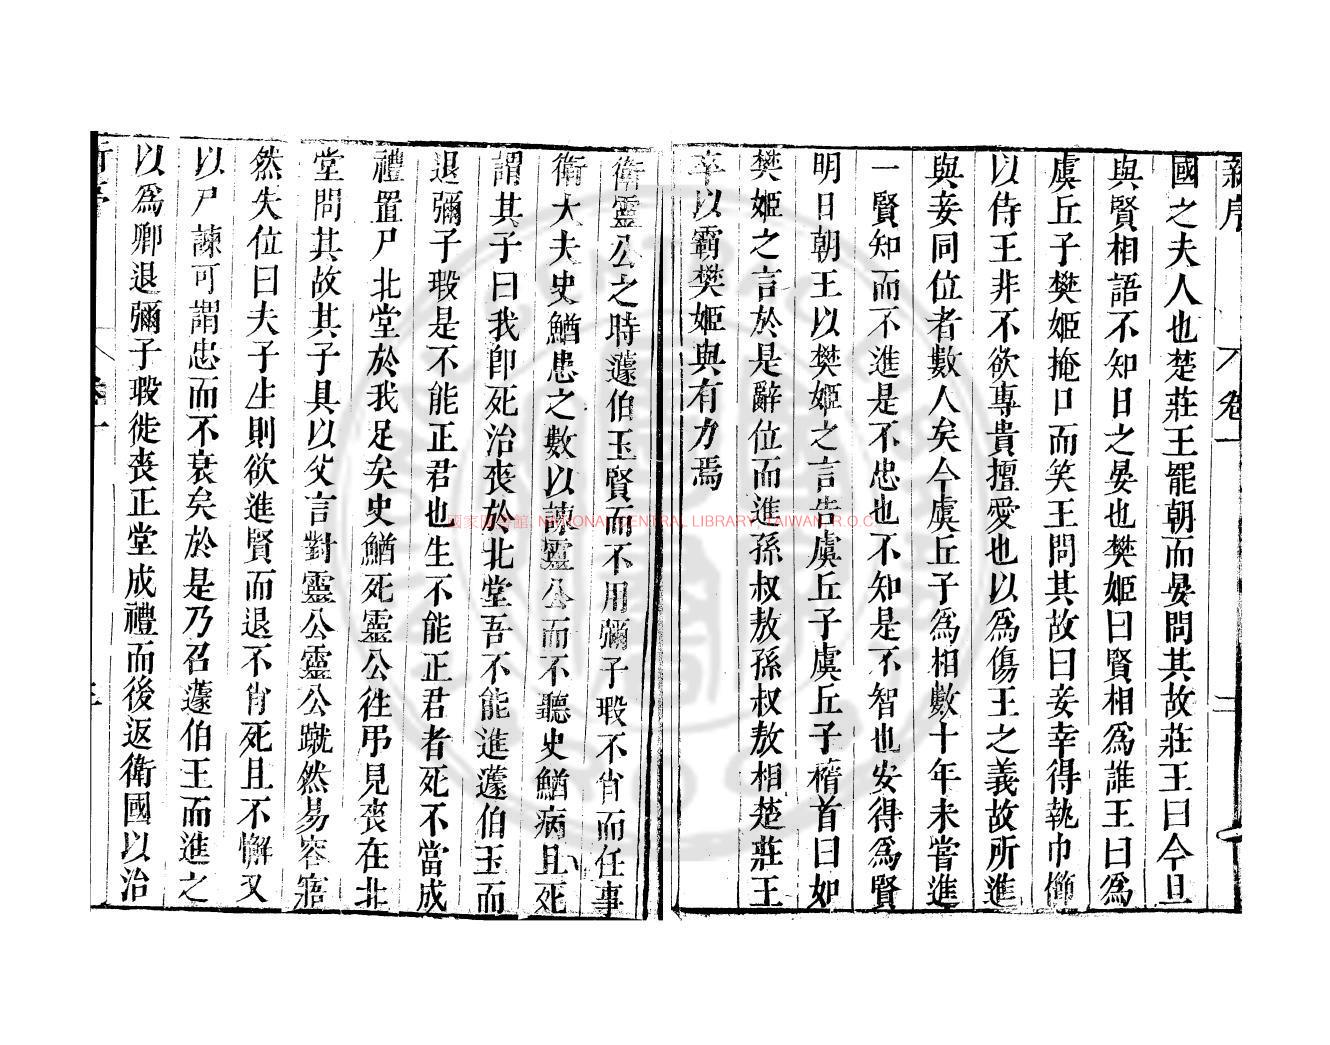 新序 卷一 二
國之夫人也楚莊王罷朝而晏問其故莊王曰今旦
與賢相語不知日之晏也樊姬曰賢相爲誰王曰爲
虞丘子樊姬掩口而笑王問其故曰妾幸得執巾櫛
以侍王非不欲專貴擅愛也以爲傷王之義故所進
與妾同位者數人矣今虞丘子爲相數十年未嘗進
一賢知而不進是不忠也不知是不智也安得爲賢
明日朝王以樊姬之言告虞丘子虞丘子稽首曰如
樊姬之言於是辭位而進孫叔敖孫叔敖相楚莊王
卒以霸樊姬與有力焉
衛靈公之時蘧伯玉賢而不用彌子瑕不肖而任事
衛大夫史鰌患之數以諫靈公而不聽史鰌病且死
謂其子曰我卽死治喪於北堂吾不能進蘧伯玉而
退彌子瑕是不能正君也生不能正君者死不當成
禮置尸北堂於我足矣史鰌死靈公徃弔見喪在北
堂問其故其子具以父言對靈公靈公蹴然易容寤
然失位曰夫子生則欲進賢而退不肖死且不懈又
以尸諫可謂忠而不衰矣於是乃召蘧伯玉而進之
以爲卿退彌子瑕徙喪正堂成禮而後返衛國以治
國家圖書館, NATIONAL CENTRAL LIBRARY, TAIWAN, R.O.C